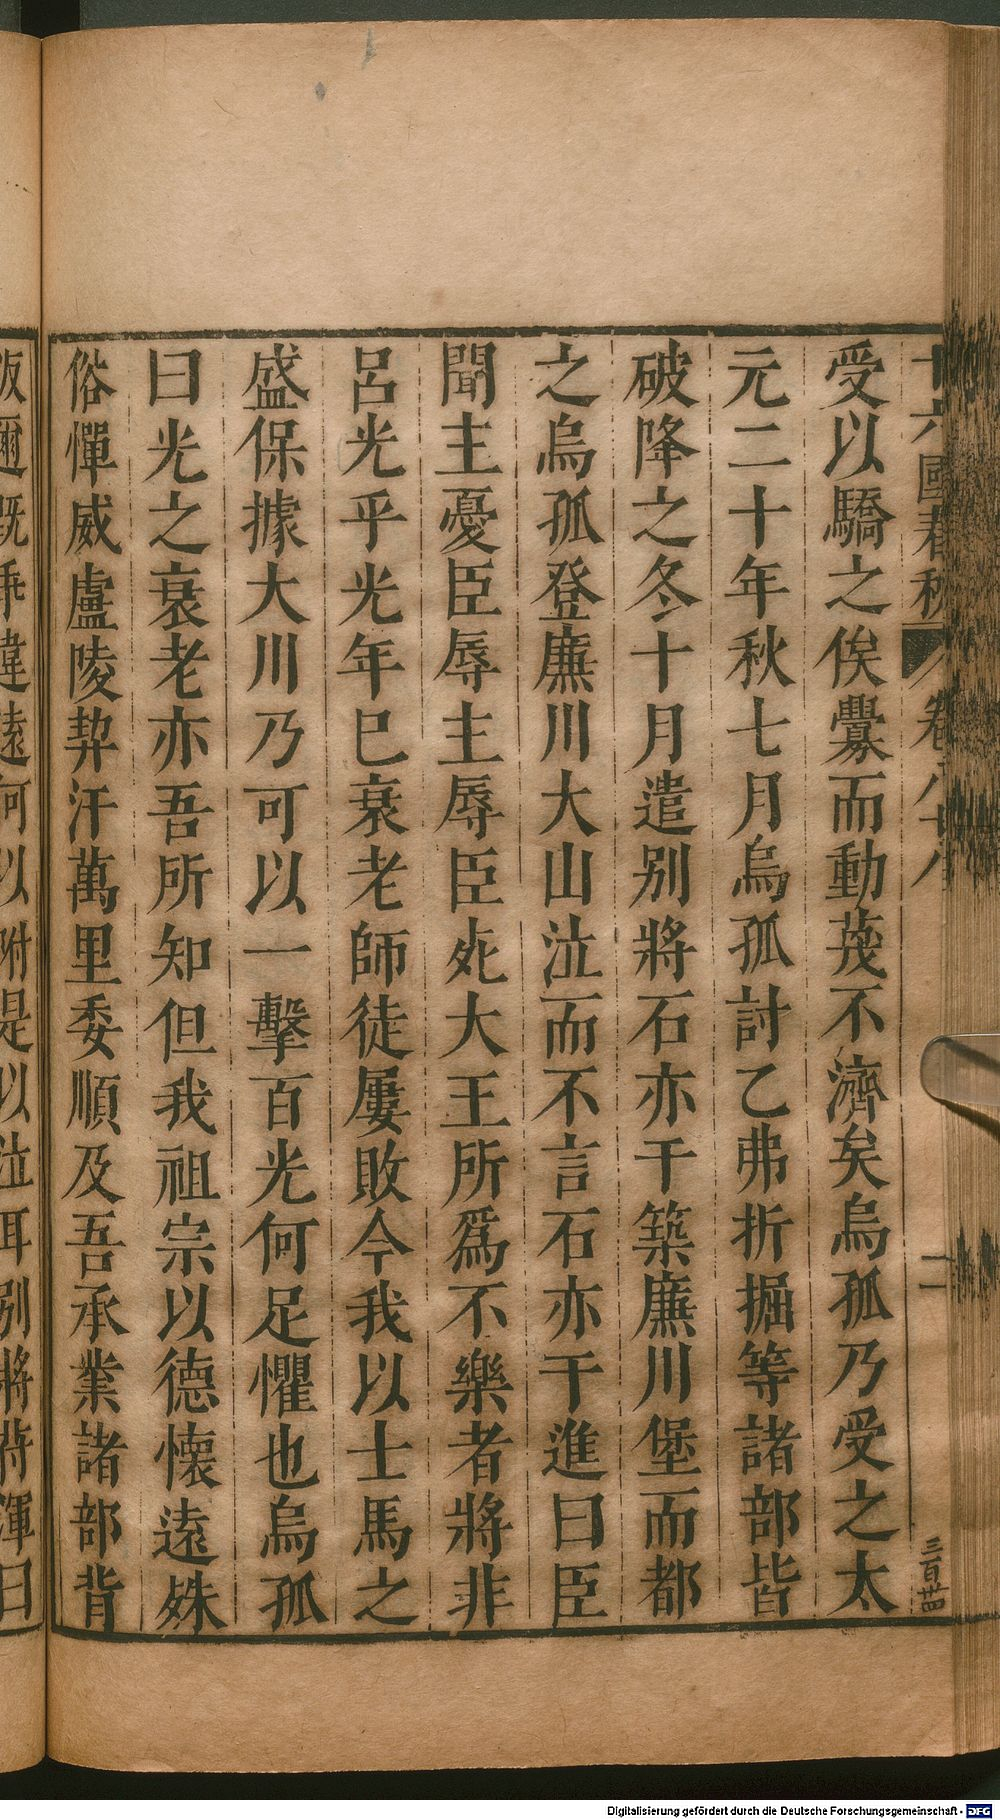 十六國春秋 卷八十八 二 三百卌四
受以驕之俟釁而動蔑不濟矣烏孤乃受之太
元二十年秋七月烏孤討乙弗折掘等諸部皆
破降之冬十月遣別將石亦干築廉川堡而都
之烏孤登廉川大山泣而不言石亦干進曰臣
聞主憂臣辱主辱臣死大王所爲不樂者將非
呂光乎光年已衰老師徒屢敗今我以士馬之
盛保據大川乃可以一擊百光何足懼也烏孤
曰光之衰老亦吾所知但我祖宗以德懷遠殊
俗憚威盧陵契汗萬里委順及吾承業諸部背
叛邇既乖違遠何以附是以泣耳別將苻渾曰
Digitalisierung gefördert durch die Deutsche Forschungsgemeinschaft - DFG